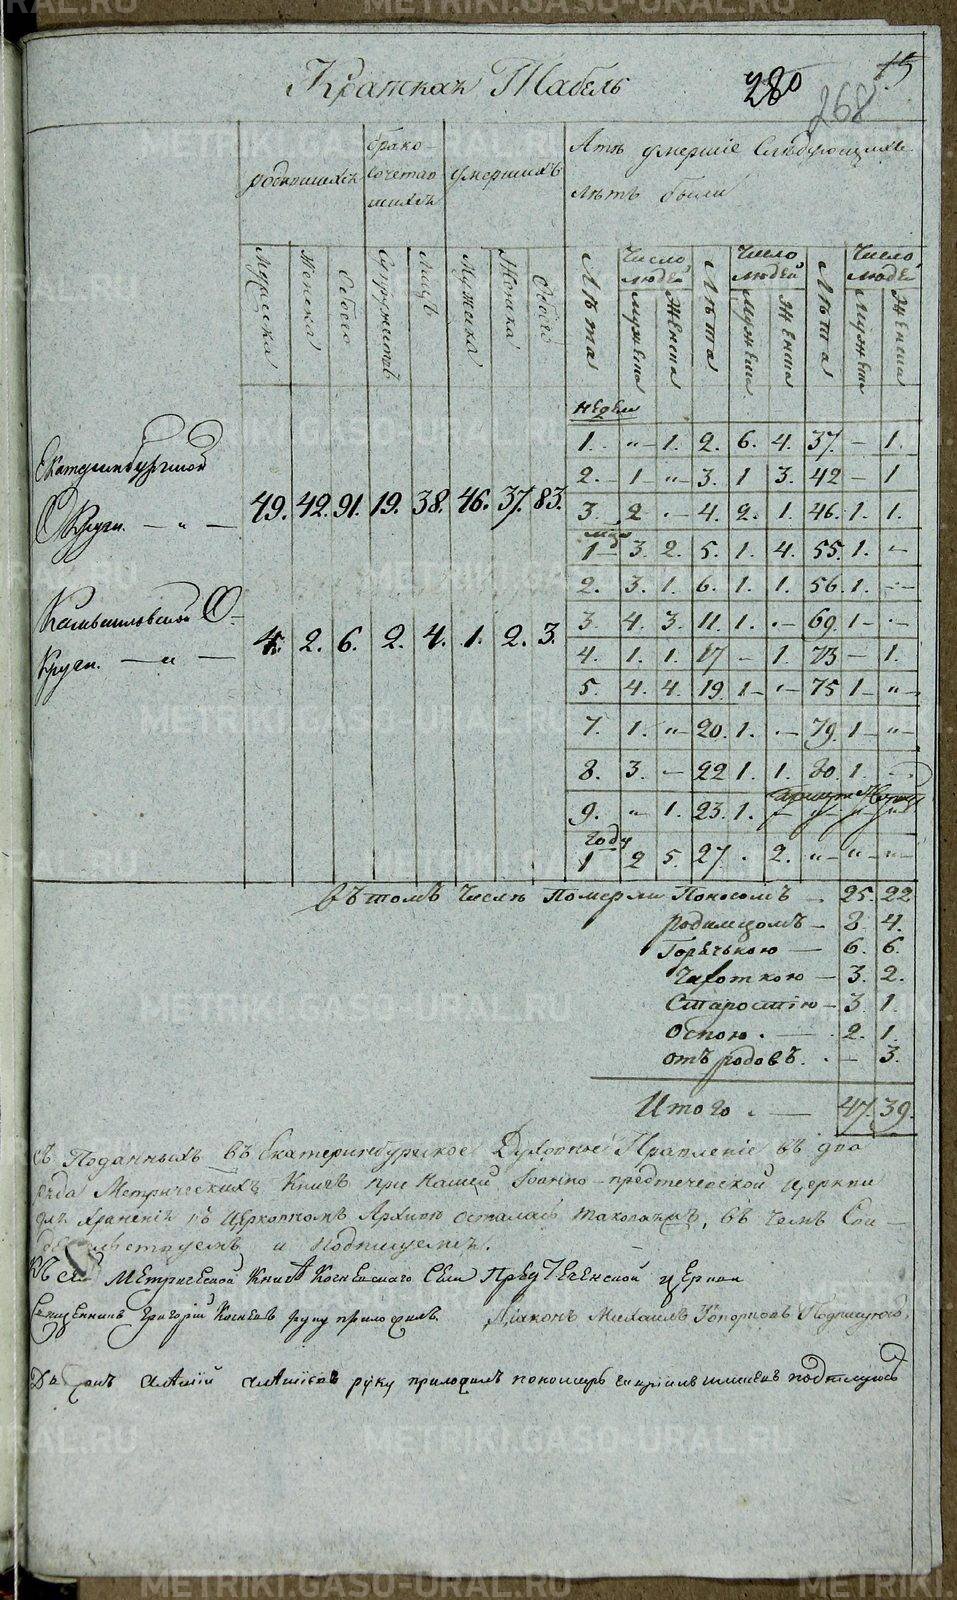 Краткая Табель
15
280
268
родившихся
брако-
сочетав
шихся
умершихъ
Лѣта умершіе слѣдующихъ
лѣтъ были
Мужеска
Женска
Обоего
Супружествъ
Лицъ
Мужеска
Женска
Обоего
Лѣта
Число людей
Мужеска
Женска
Лѣта
Число людей
Мужеска
Женска
Лѣта
Число людей
Мужеска
Женска
недели
1. „ 1. 2. 6. 4. 37. — 1.
2. 1 „ 3. 1 3. 42 — 1
3. 2 — 4. 2. 1. 46. 1. 1.
1 3. 2. 5. 1. 4. 55. 1. —
2. 3. 1. 6. 1. 1. 56. 1. —
3. 4. 3. 11. 1. — 69. 1 —
4. 1. 1. 17 — 1. 73 — 1.
5. 4. 4. 19. 1 — 75 1 „
7. 1. „ 20. 1. — 79. 1 „
8. 3. — 22 1. 1. 80. 1. —
9. „ 1. 23. 1.
году
1 2 5. 27. . 2. „ „ „
Екатеринбургской
Округи. — „ — 49. 42. 91. 19. 38. 46. 37. 83.
Камышловской О-
круги. — „ — 4. 2. 6. 2. 4. 1. 2. 3.
Въ томъ числѣ померли Поносомъ 25. 22
родимцомъ 8. 4.
Горячькою 6. 6.
Чахоткою 3. 2.
Старостію 3. 1.
Оспою 2. 1.
отъ родовъ — 3.
Итого 47. 39.
съ Поданныхъ въ Екатеринбургское Духовное Правленіе въ два
Метрическихъ Книгъ при нашей Іоанно-предтечевской церкви
для храненія въ Церковномъ Архивѣ осталась таковаяжъ, въ чемъ Сви-
детельствуемъ и подписуемся.
Къ сей Метрической Книгѣ Косневскаго Села Предтечевской церкви
Священникъ Григорій Косневъ руку приложилъ. Діаконъ Михаилъ Топорковъ Подписуюсь.
руку приложилъ пономарь подписуюсь
METRIKI.GASO-URAL.RU